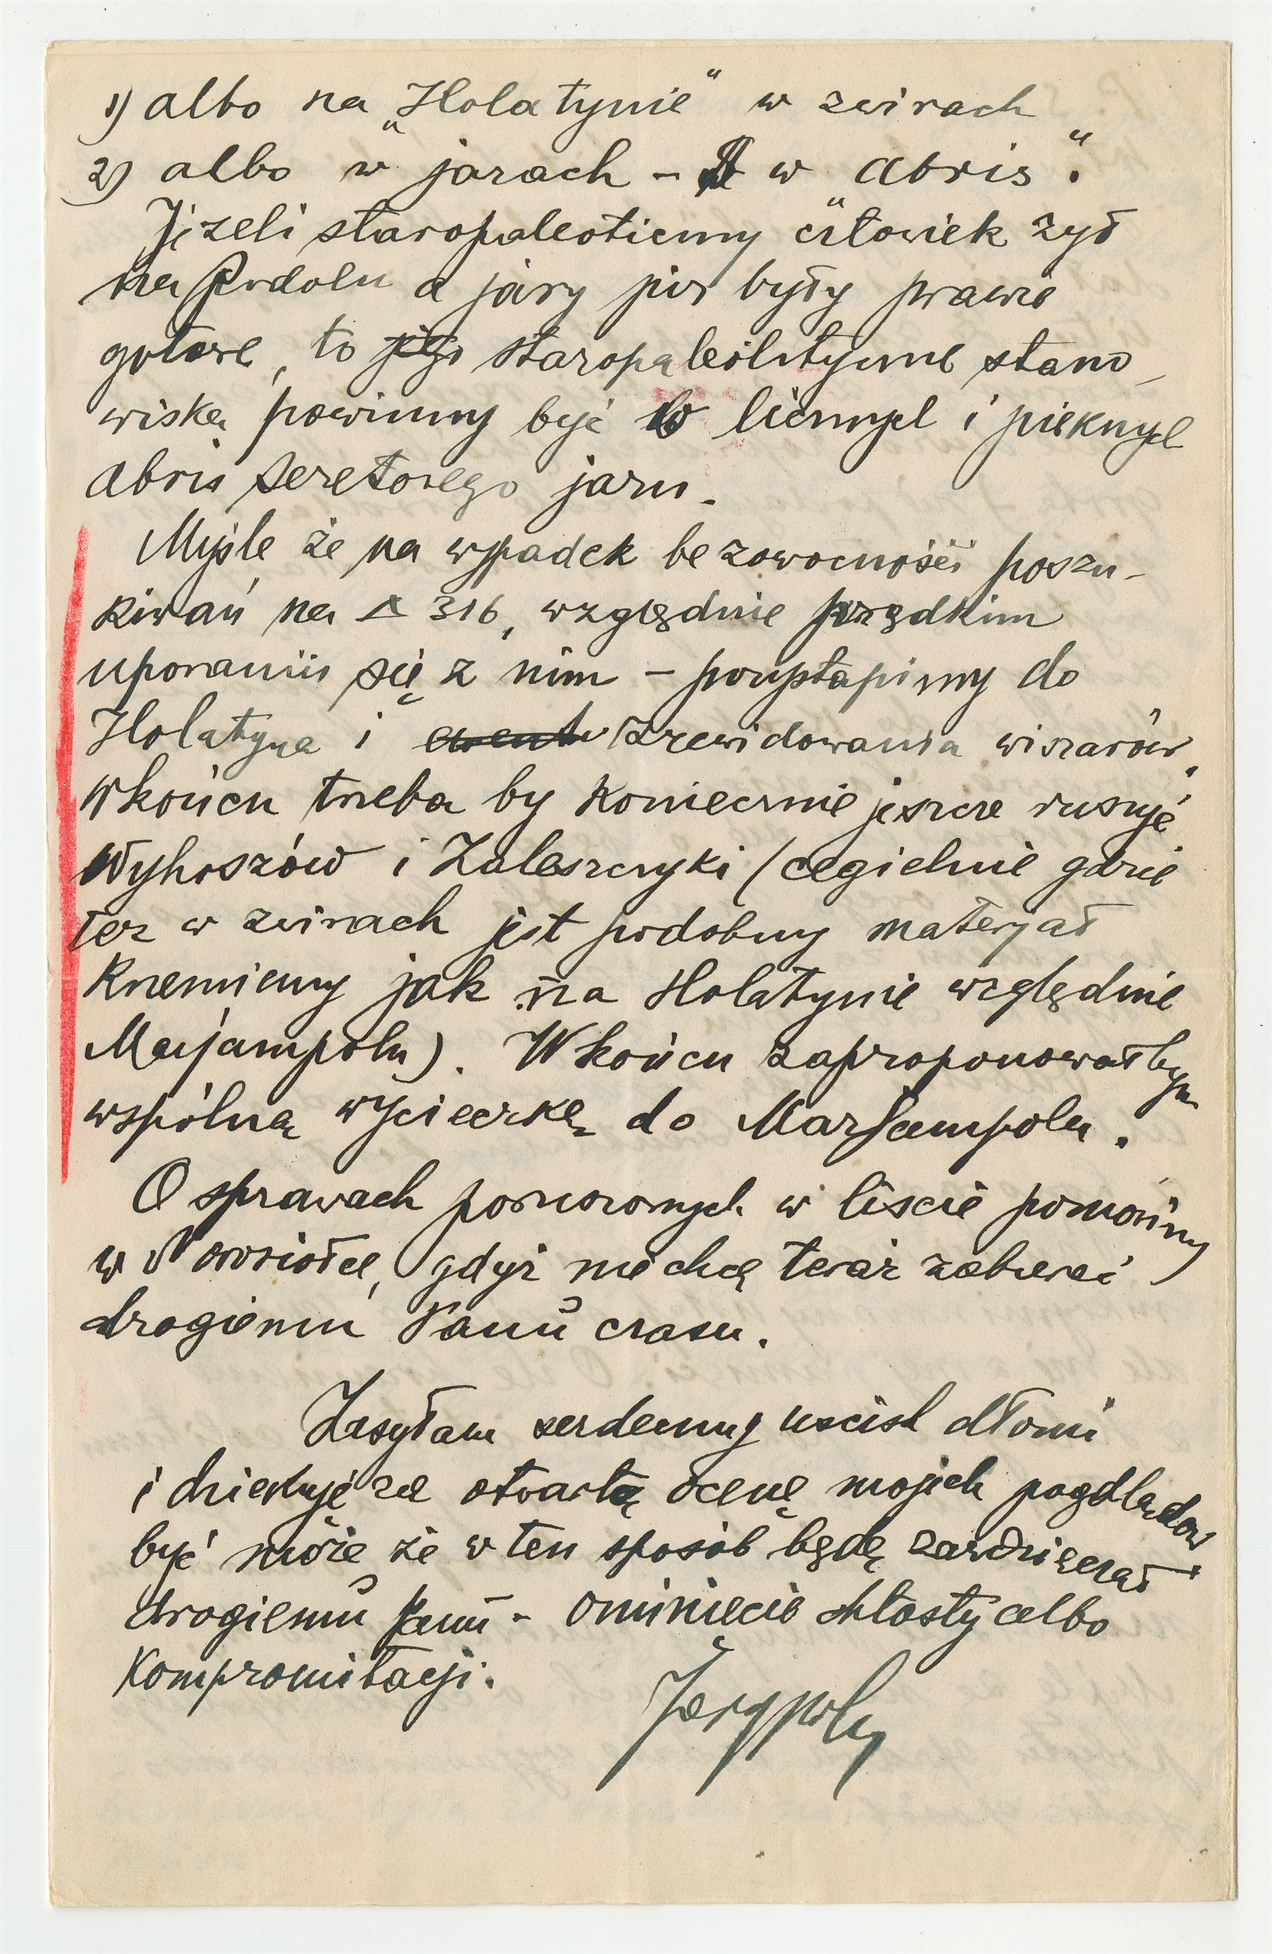 1) albo na „Holatynie" w zwirach
2) albo w „jarach – w abris".
Jeżeli staropaleoticzny człowiek żył
na Podolu a jary już były prawie
gotowe, to jego staropaleolityczne stano_
wiska powinny być w licznych i pięknych
abris seretowego jaru.
Myślę że na wypadek bezowocności poszu-
kiwań na △ 316, względnie prędkim
uporaniu się z nim – poustąpimy do
Holatyna i ewent. zrewidowania wiszarów.
Wkońcu trzeba by koniecznie jeszcze ruszyć
Wyhoszów i Zaleszczyki (cegielnie gdzie
też w zwirach jest podobny materjał
krzemienny jak na Holatynie względnie
Marjampolu). Wkońcu zaproponowałbym
wspólną wycieczkę do Marjampola.
O sprawach poruszonych w liście pomówimy
w Nowosiółce, gdyż nie chcę teraz zabierać
drogiemu Panu czasu.
Zasyłam serdeczny uścisk dłoni
i dziękuję za otwartą ocenę mojich pogdlądów
być może że w ten sposób będę zawdzięczał
drogiemu Panu – ominiecie chłosty albo
Kompromitacji.